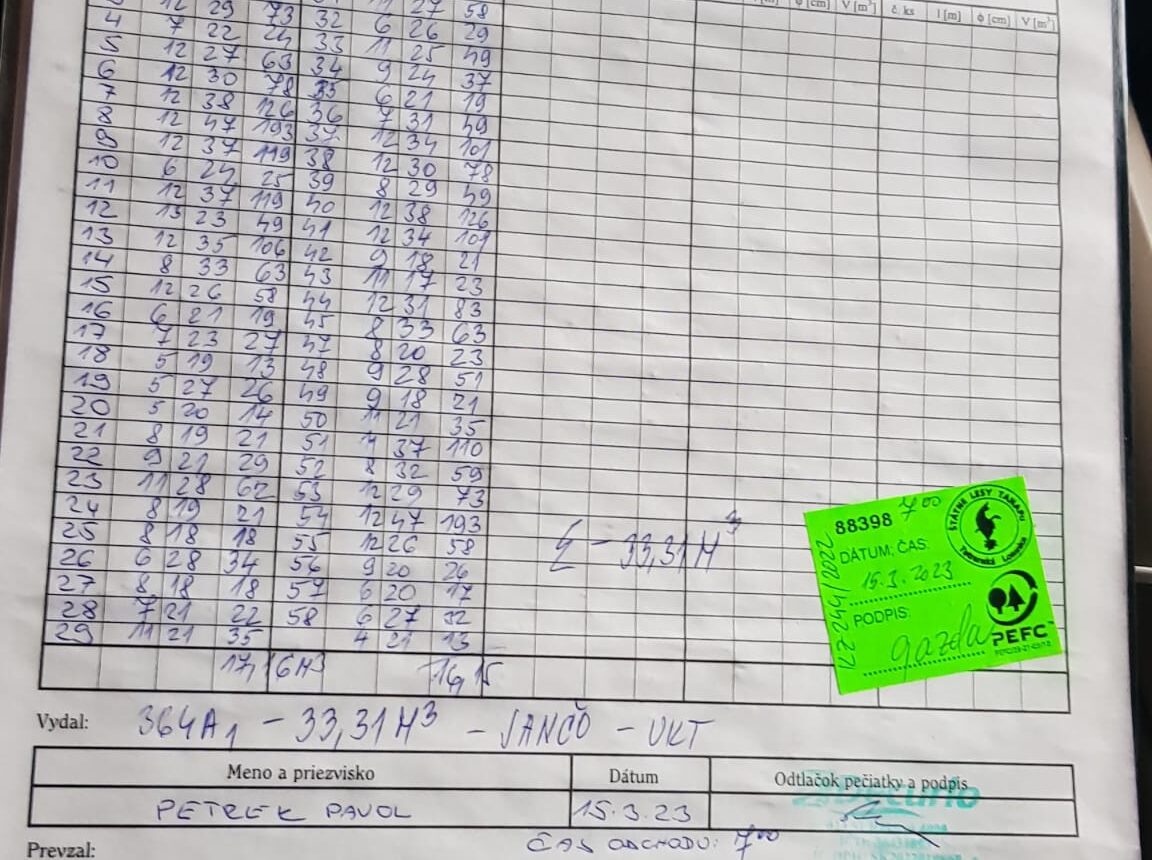 11 27 58
č. ks l [m] ϕ [cm] V [m³]
12 29 73 32 6 26 29
4 7 22 24 33 11 25 49
5 12 27 63 34 9 24 37
6 12 30 78 35 6 21 19
7 12 38 126 36 7 31 49
8 12 47 193 37 12 34 101
9 12 37 119 38 12 30 78
10 6 24 25 39 8 29 49
11 12 37 119 40 12 38 126
12 13 23 49 41 12 34 101
13 12 35 106 42 9 18 21
14 8 33 63 43 11 17 23
15 12 26 58 44 12 31 83
16 6 21 19 45 8 33 63
17 7 23 27 47 8 20 23
18 5 19 13 48 9 28 51
19 5 27 26 49 9 18 21
20 5 20 14 50 11 21 35
21 8 19 21 51 11 37 110
22 9 21 29 52 8 32 59
23 11 28 62 53 12 29 73
24 8 19 21 54 12 47 193
25 8 18 18 55 12 26 58
26 6 28 34 56 9 20 26
27 8 18 18 57 6 20 17
28 7 21 22 58 6 27 32
29 11 21 35 4 21 13
17,16M³ 16,15
Σ - 33,31M³
88398 7⁰⁰
DÁTUM: ČAS:
15.3.2023
PODPIS:
gazda
LZ 244/2022
ŠTÁTNE LESY TANAPU
Tatranská Lomnica
PEFC
Vydal: 364A₁ - 33,31M³ - JANČO - UKT
Meno a priezvisko Dátum Odtlačok pečiatky a podpis
PETREK PAVOL 15.3.23
Prevzal: ČAS ODCHODU: 7⁰⁰